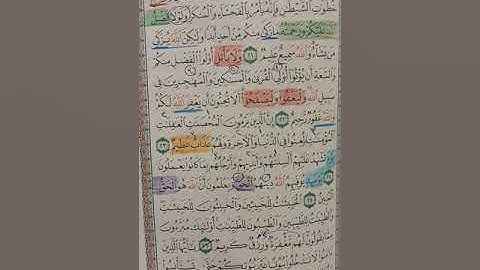 خُطُوَٰتِ ٱلشَّيْطَٰنِ فَإِنَّهُۥ يَأْمُرُ بِٱلْفَحْشَآءِ وَٱلْمُنكَرِ وَلَوْلَا فَضْلُ
ٱللَّهِ عَلَيْكُمْ وَرَحْمَتُهُۥ مَا زَكَىٰ مِنكُم مِّنْ أَحَدٍ أَبَدًا وَلَٰكِنَّ ٱللَّهَ يُزَكِّى
مَن يَشَآءُ وَٱللَّهُ سَمِيعٌ عَلِيمٌ ٢١ وَلَا يَأْتَلِ أُو۟لُوا۟ ٱلْفَضْلِ مِنكُمْ
وَٱلسَّعَةِ أَن يُؤْتُوٓا۟ أُو۟لِى ٱلْقُرْبَىٰ وَٱلْمَسَٰكِينَ وَٱلْمُهَٰجِرِينَ فِى
سَبِيلِ ٱللَّهِ وَلْيَعْفُوا۟ وَلْيَصْفَحُوٓا۟ أَلَا تُحِبُّونَ أَن يَغْفِرَ ٱللَّهُ لَكُمْ
وَٱللَّهُ غَفُورٌ رَّحِيمٌ ٢٢ إِنَّ ٱلَّذِينَ يَرْمُونَ ٱلْمُحْصَنَٰتِ ٱلْغَٰفِلَٰتِ
ٱلْمُؤْمِنَٰتِ لُعِنُوا۟ فِى ٱلدُّنْيَا وَٱلْـَٔاخِرَةِ وَلَهُمْ عَذَابٌ عَظِيمٌ ٢٣
يَوْمَ تَشْهَدُ عَلَيْهِمْ أَلْسِنَتُهُمْ وَأَيْدِيهِمْ وَأَرْجُلُهُم بِمَا كَانُوا۟ يَعْمَلُونَ
٢٤ يَوْمَئِذٍ يُوَفِّيهِمُ ٱللَّهُ دِينَهُمُ ٱلْحَقَّ وَيَعْلَمُونَ أَنَّ ٱللَّهَ هُوَ ٱلْحَقُّ
ٱلْمُبِينُ ٢٥ ٱلْخَبِيثَٰتُ لِلْخَبِيثِينَ وَٱلْخَبِيثُونَ لِلْخَبِيثَٰتِ
وَٱلطَّيِّبَٰتُ لِلطَّيِّبِينَ وَٱلطَّيِّبُونَ لِلطَّيِّبَٰتِ أُو۟لَٰٓئِكَ مُبَرَّءُونَ
مِمَّا يَقُولُونَ لَهُم مَّغْفِرَةٌ وَرِزْقٌ كَرِيمٌ ٢٦ يَٰٓأَيُّهَا ٱلَّذِينَ
ءَامَنُوا۟ لَا تَدْخُلُوا۟ بُيُوتًا غَيْرَ بُيُوتِكُمْ حَتَّىٰ تَسْتَأْنِسُوا۟